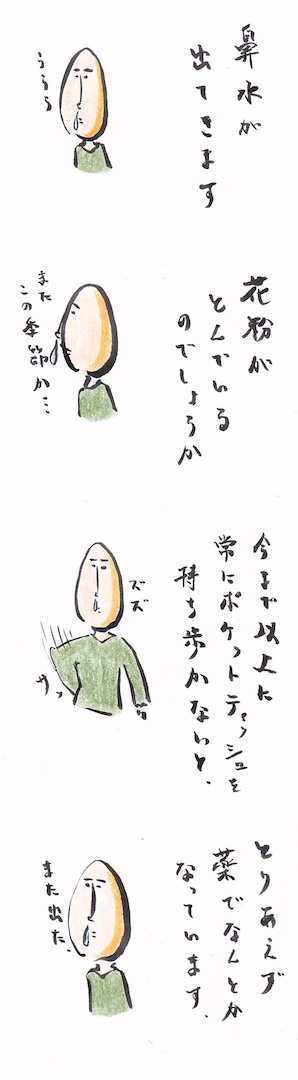 鼻水が
出てきます
うぅぅ
花粉が
とんでいる
のでしょうか
また
この季節か…
今まで以上に
常にポケットティッシュを
持ち歩かないと、
ズズ
サッ
とりあえず
薬でなんとか
なっています。
また出た、